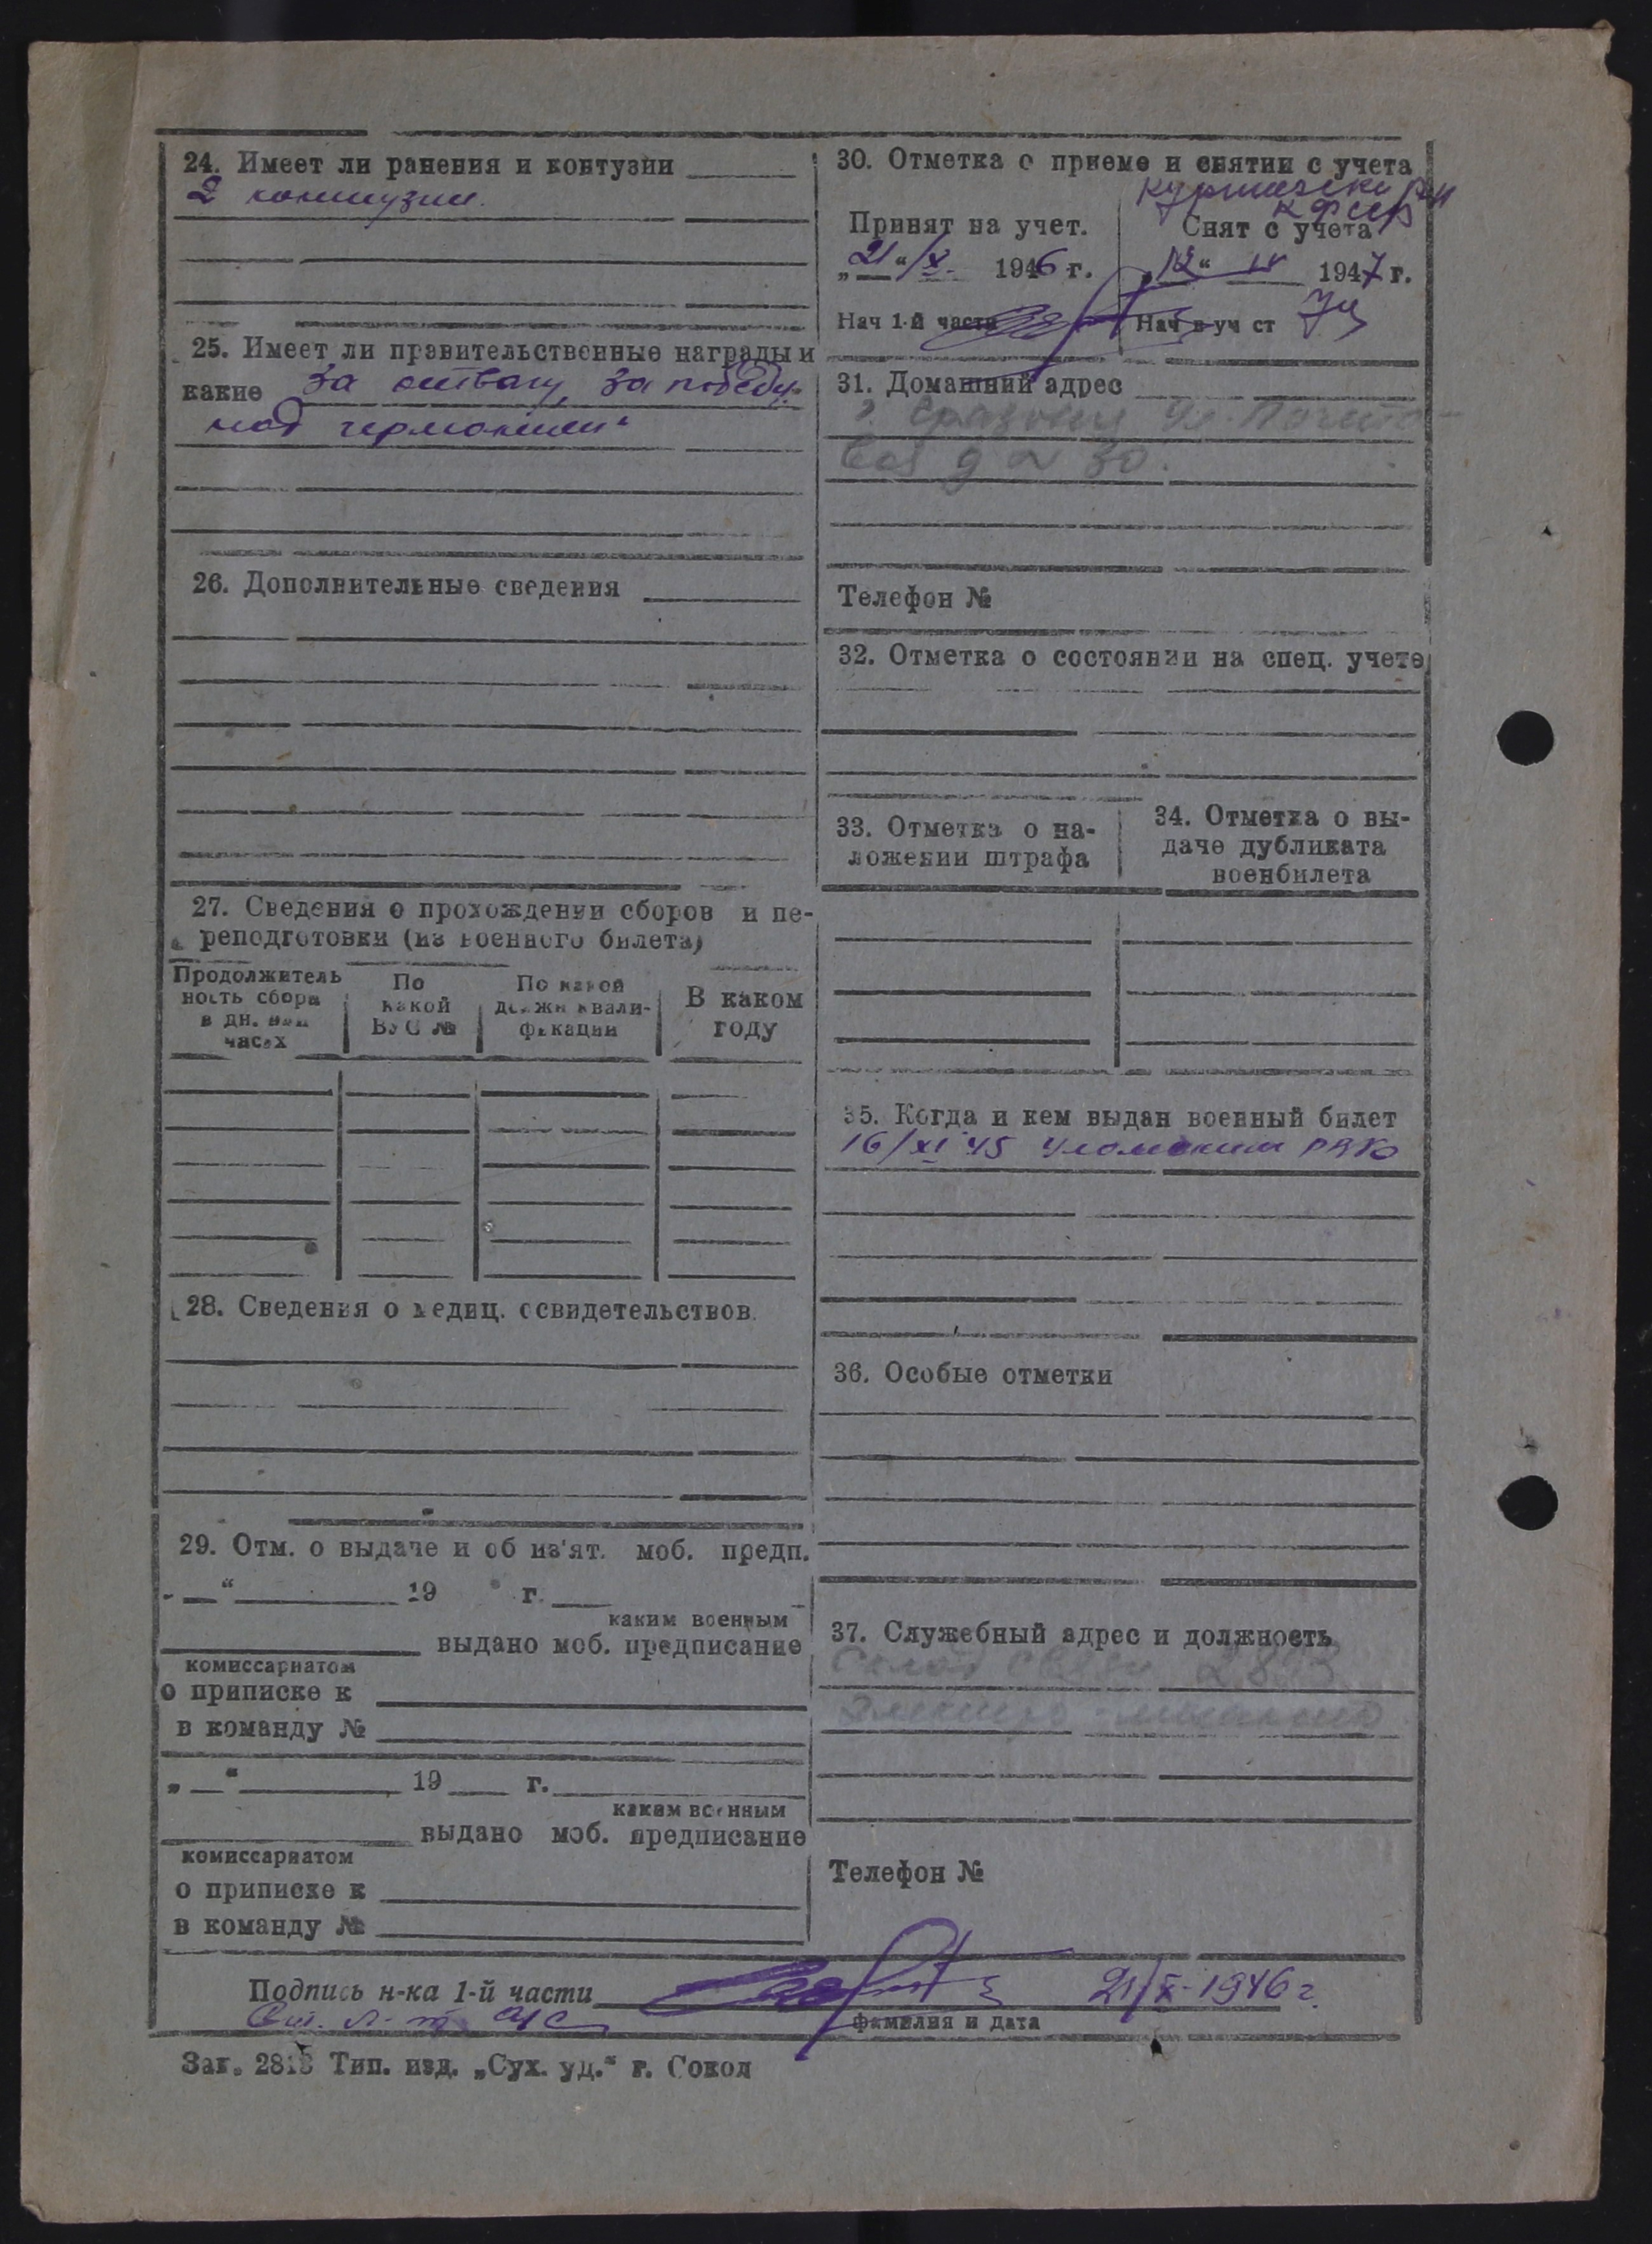 24. Имеет ли ранения и контузии
2 контузии.
25. Имеет ли правительственные награды и
какие За отвагу, За победу
над германией"
26. Дополнительные сведения
27. Сведения о прохождении сборов и пе-
реподготовки (из военного билета)
Продолжитель
ность сбора
в дн. или
часах
По
какой
ВУС №
По какой
должн квали-
фикации
В каком
году
28. Сведения о медиц. освидетельствов.
29. Отм. о выдаче и об из'ят. моб. предп.
„ “ 19 г.
каким военным
выдано моб. предписание
комиссариатом
о приписке к
в команду №
„ “ 19 г.
каким военным
выдано моб. предписание
комиссариатом
о приписке к
в команду №
30. Отметка о приеме и снятии с учета
Принят на учет.
„21“/X. 1946 г.
Нач 1-й части
Снят с учета
„12“ 1947 г.
Нач в-уч ст
31. Домашний адрес
ул. Почто-
вая д № 30.
Телефон №
32. Отметка о состоянии на спец. учете
33. Отметка о на-
ложении штрафа
34. Отметка о вы-
даче дубликата
военбилета
35. Когда и кем выдан военный билет
16/XI 45 Уломским РВК
36. Особые отметки
37. Служебный адрес и должность
Склад связи
Телефон №
Подпись н-ка 1-й части 21/X-1946 г.
Ст. л-т а/с
фамилия и дата
Зак. 2813 Тип. изд. „Сух. уд.“ г. Сокол